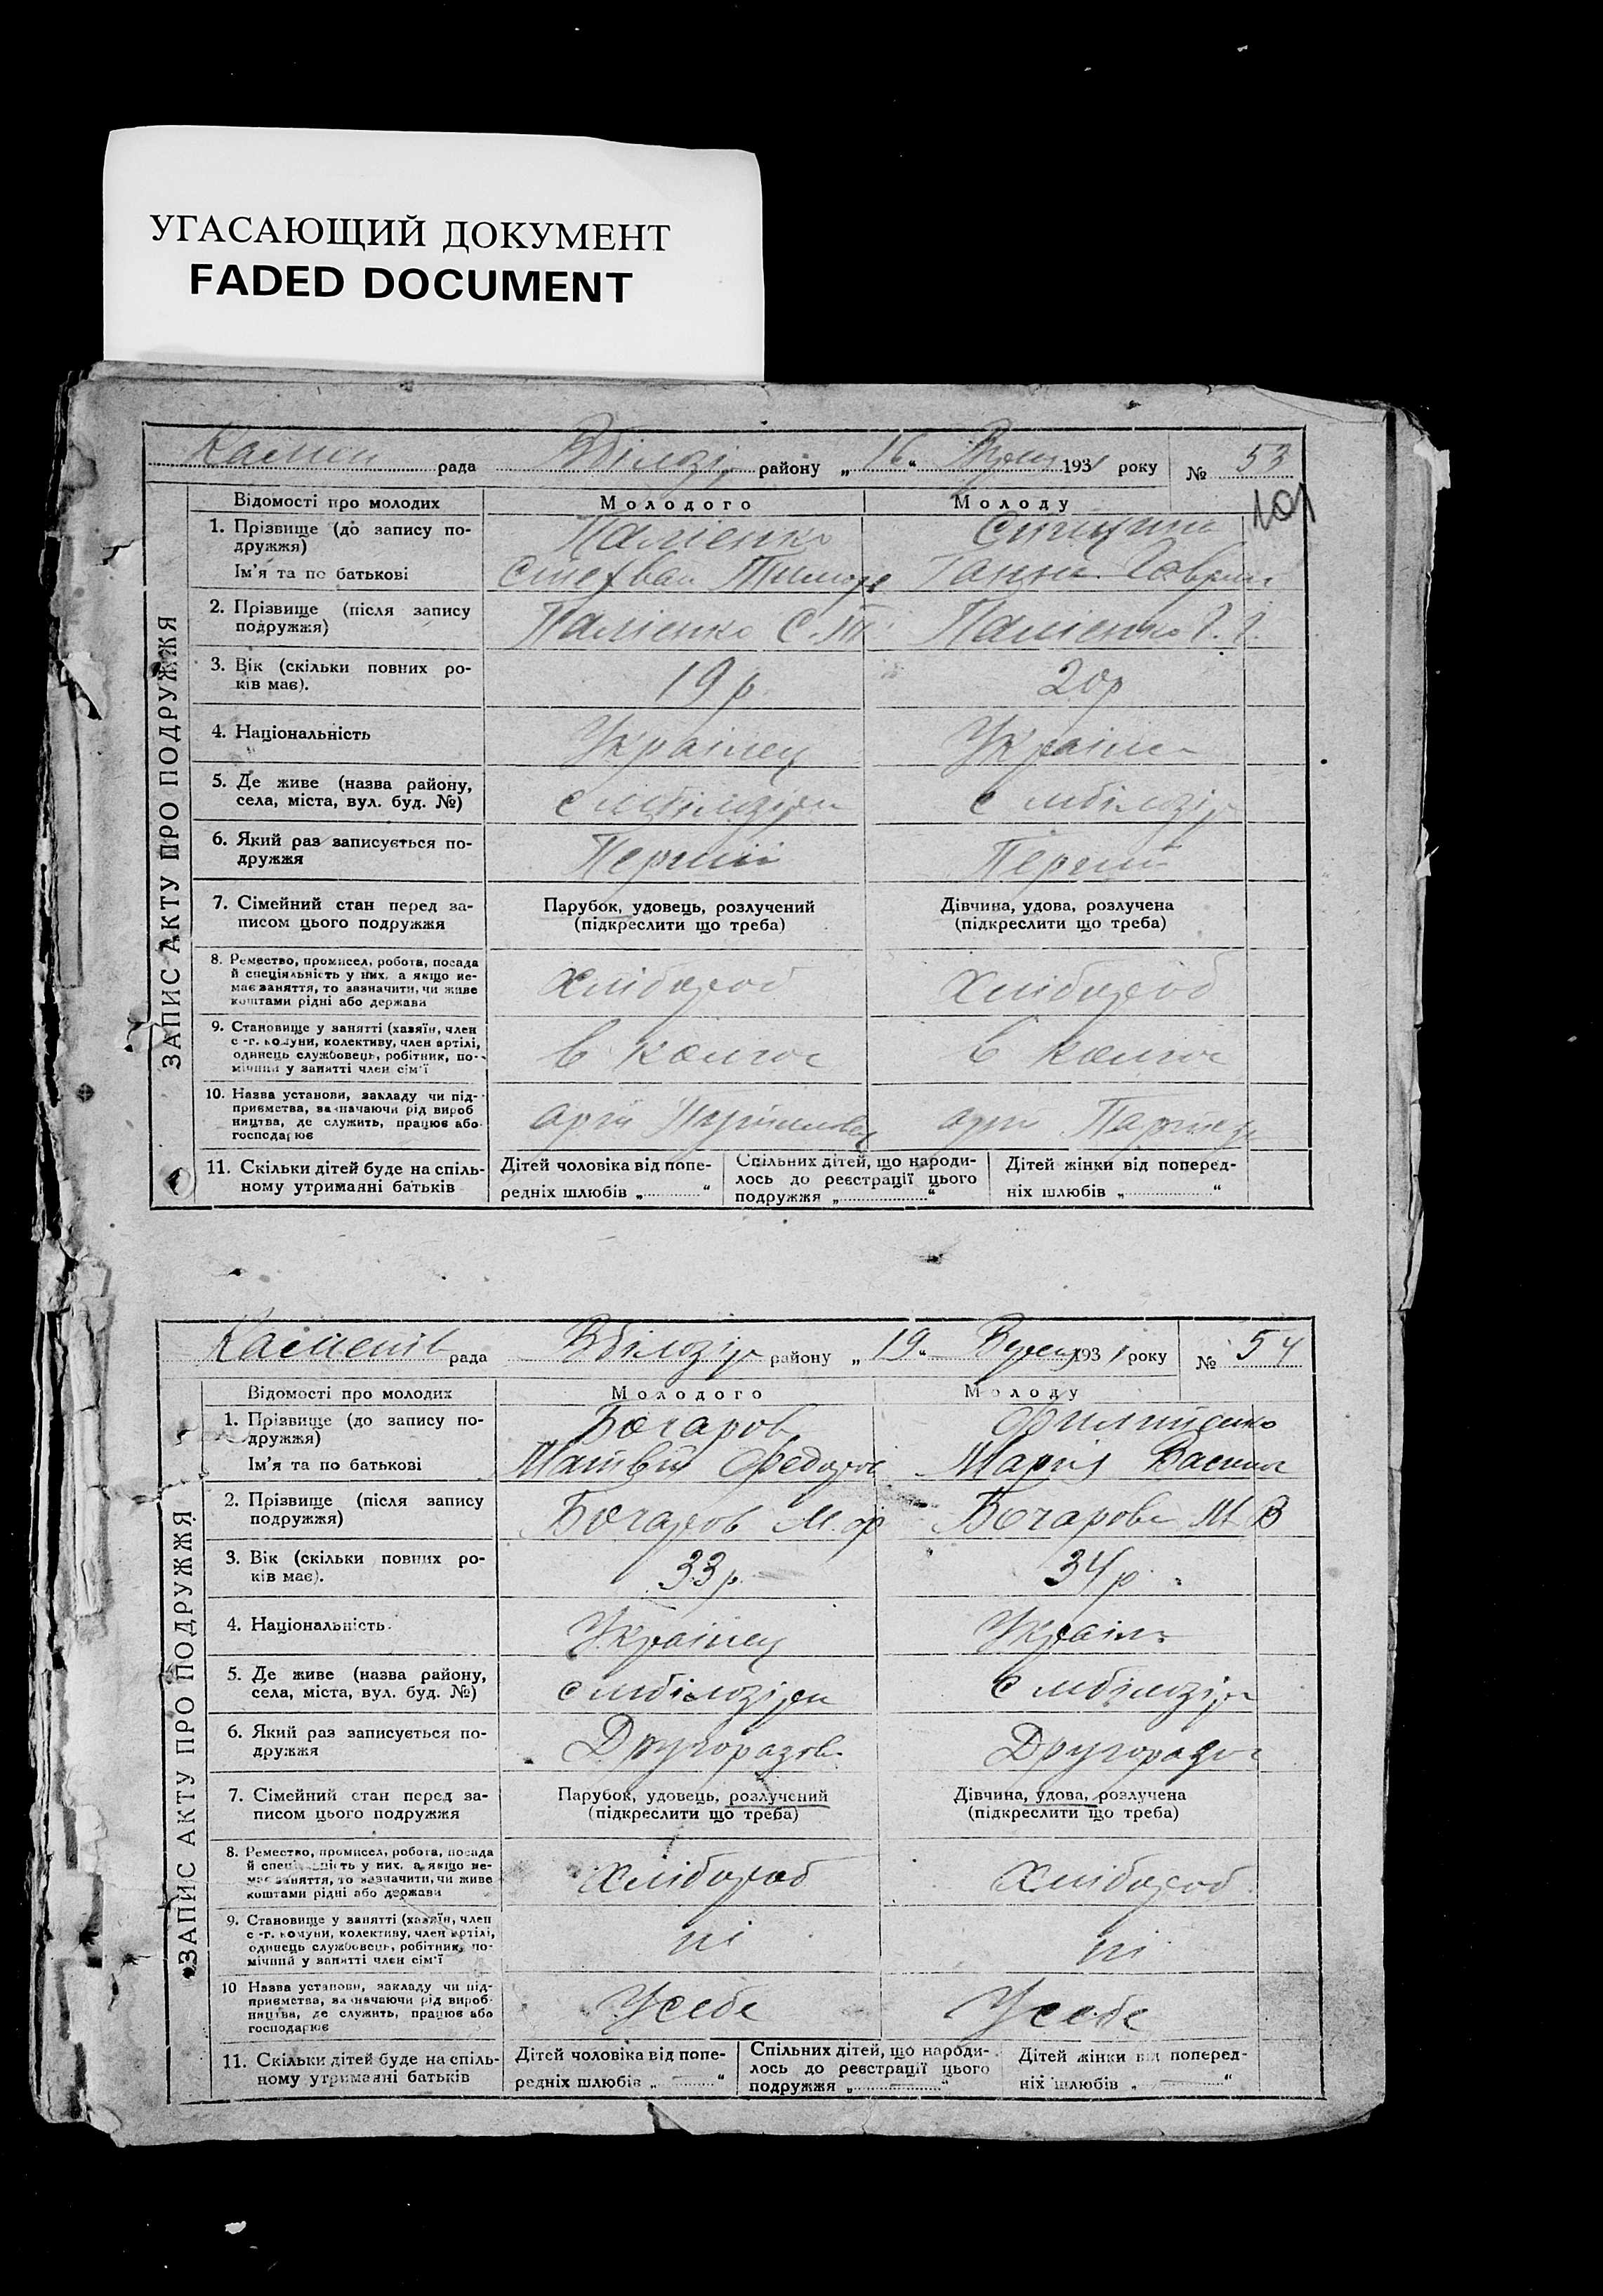 УГАСАЮЩИЙ ДОКУМЕНТ
FADED DOCUMENT
рада Вбілозір району „16“ 1931 року № 53
101
ЗАПИС АКТУ ПРО ПОДРУЖЖЯ
Відомості про молодих Молодого Молоду
1. Прізвище (до запису по-
дружжя) Палієнко
Ім'я та по батькові Степан Тимоф Ганна Гаврил
2. Прізвище (після запису
подружжя) Палієнко С. Т. Палієнко Г. Г.
3. Вік (скільки повних ро-
ків має). 19 р 20 р
4. Національність Українец Україн
5. Де живе (назва району,
села, міста, вул. буд. №) с мбілозіри с мбілозір
6. Який раз записується по-
дружжя Перший Перший
7. Сімейний стан перед за-
писом цього подружжя
Парубок, удовець, розлучений
(підкреслити що треба)
Дівчина, удова, розлучена
(підкреслити що треба)
8. Ремество, промисел, робота, посада
й спеціяльність у них, а якщо не-
має заняття, то зазначити, чи живе
коштами рідні або держави
Хлібороб Хлібороб
9. Становище у занятті (хазяїн, член
с.-г. комуни, колективу, член артілі,
одинець службовець, робітник, по-
мічний у занятті член сім'ї
в колгос в колгос
10. Назва установи, закладу чи під-
приємства, зазначаючи рід вироб
ництва, де служить, працює або
господарює
11. Скільки дітей буде на спіль-
ному утриманні батьків
Дітей чоловіка від попе-
редніх шлюбів „ “
Спільних дітей, що народи-
лось до реєстрації цього
подружжя „ “
Дітей жінки від поперед-
ніх шлюбів „ “
Каменів рада Вбілозір району „19“ 1931 року № 54
ЗАПИС АКТУ ПРО ПОДРУЖЖЯ
Відомості про молодих Молодого Молоду
1. Прізвище (до запису по-
дружжя) Бочаров Филипенко
Ім'я та по батькові Матвій Федоров Марія Васил
2. Прізвище (після запису
подружжя) Бочаров М. Ф Бочарова М В
3. Вік (скільки повних ро-
ків має). 33 р. 34 р.
4. Національність. Українец Україн
5. Де живе (назва району,
села, міста, вул. буд. №) с мбілозіри с мбілозір
6. Який раз записується по-
дружжя Другоразов Другоразо
7. Сімейний стан перед за-
писом цього подружжя
Парубок, удовець, розлучений
(підкреслити що треба)
Дівчина, удова, розлучена
(підкреслити що треба)
8. Ремество, промисел, робота, посада
й спеціяльність у них, а якщо не-
має заняття, то зазначити, чи живе
коштами рідні або держави
Хлібороб Хлібороб
9. Становище у занятті (хазяїн, член
с.-г. комуни, колективу, член артілі,
одинець службовець, робітник, по-
мічний у занятті член сім'ї
ні ні
10 Назва установи, закладу чи під-
приємства, зазначаючи рід вироб-
ництва, де служить, працює або
господарює
Усебе Усебе
11. Скільки дітей буде на спіль-
ному утриманні батьків
Дітей чоловіка від попе-
редніх шлюбів „ — “
Спільних дітей, що народи-
лось до реєстрації цього
подружжя „ — “
Дітей жінки від поперед-
ніх шлюбів „ — “